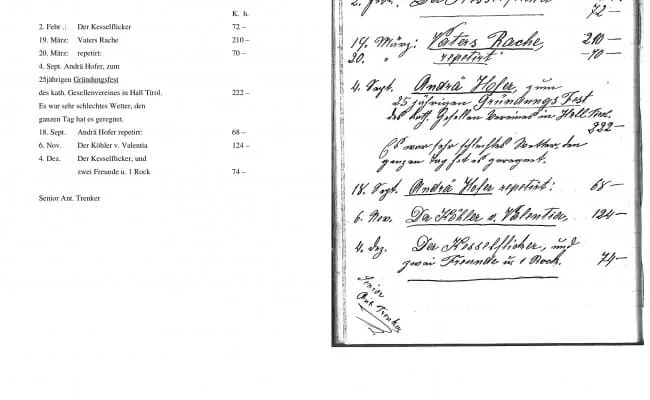 K. h.
2. Febr .: Der Kesselflicker 72 –
19. März: Vaters Rache 210 –
20. März: repetirt: 70 –
4. Sept. Andrä Hofer, zum
25jährigen Gründungsfest
des kath. Gesellenvereines in Hall Tirol. 222 –
Es war sehr schlechtes Wetter, den
ganzen Tag hat es geregnet.
18. Sept. Andrä Hofer repetirt: 68 –
6. Nov. Der Köhler v. Valentia 124 –
4. Dez. Der Kesselflicker, und
zwei Freunde u. 1 Rock 74 –
Senior Ant. Trenker
2. Febr. Der Kesselflicker
72 –
19. März: Vaters Rache, 210 –
20. " repetirt 70 –
4. Sept. Andrä Hofer, zum
25 jährigen Gründungs Fest
des kath. Gesellen Vereines in Hall Tirol.
222 –
Es war sehr schlechtes Wetter, den
ganzen Tag hat es geregnet.
18. Sept. Andrä Hofer repetirt: 68 –
6. Nov. Der Köhler v. Valentia, 124 –
4. Dez. Der Kesselflicker, und
zwei Freunde u 1 Rock. 74 –
Senior
Ant. Trenker